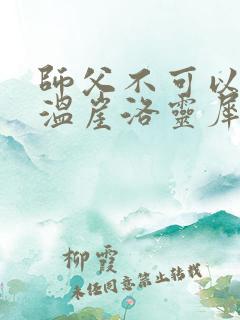 師父不可以
溫崖洛靈犀
柳霞
未经同意禁止转载